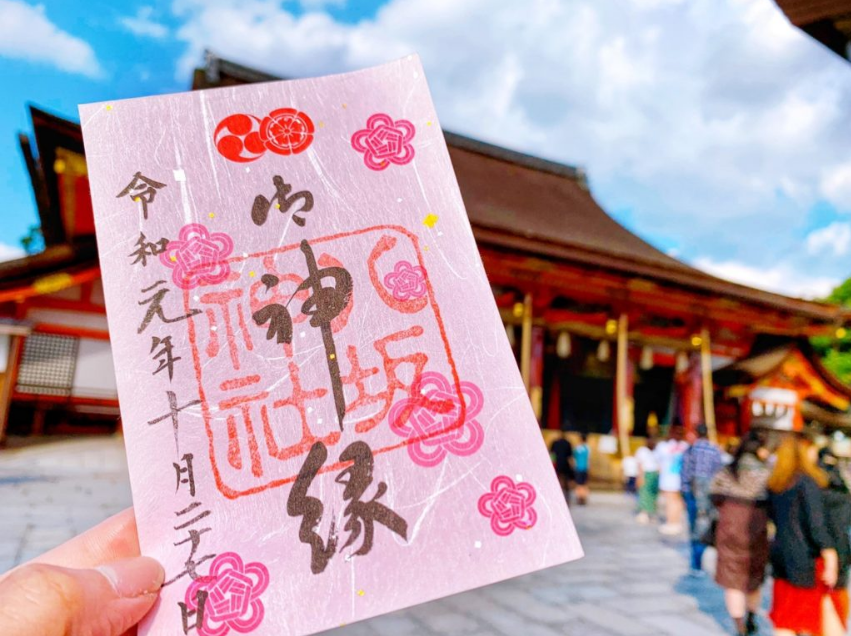 御神縁
八坂神社
令和元年十月二十七日